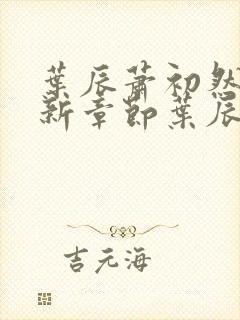 葉辰蕭初然
新章節葉辰
吉元海